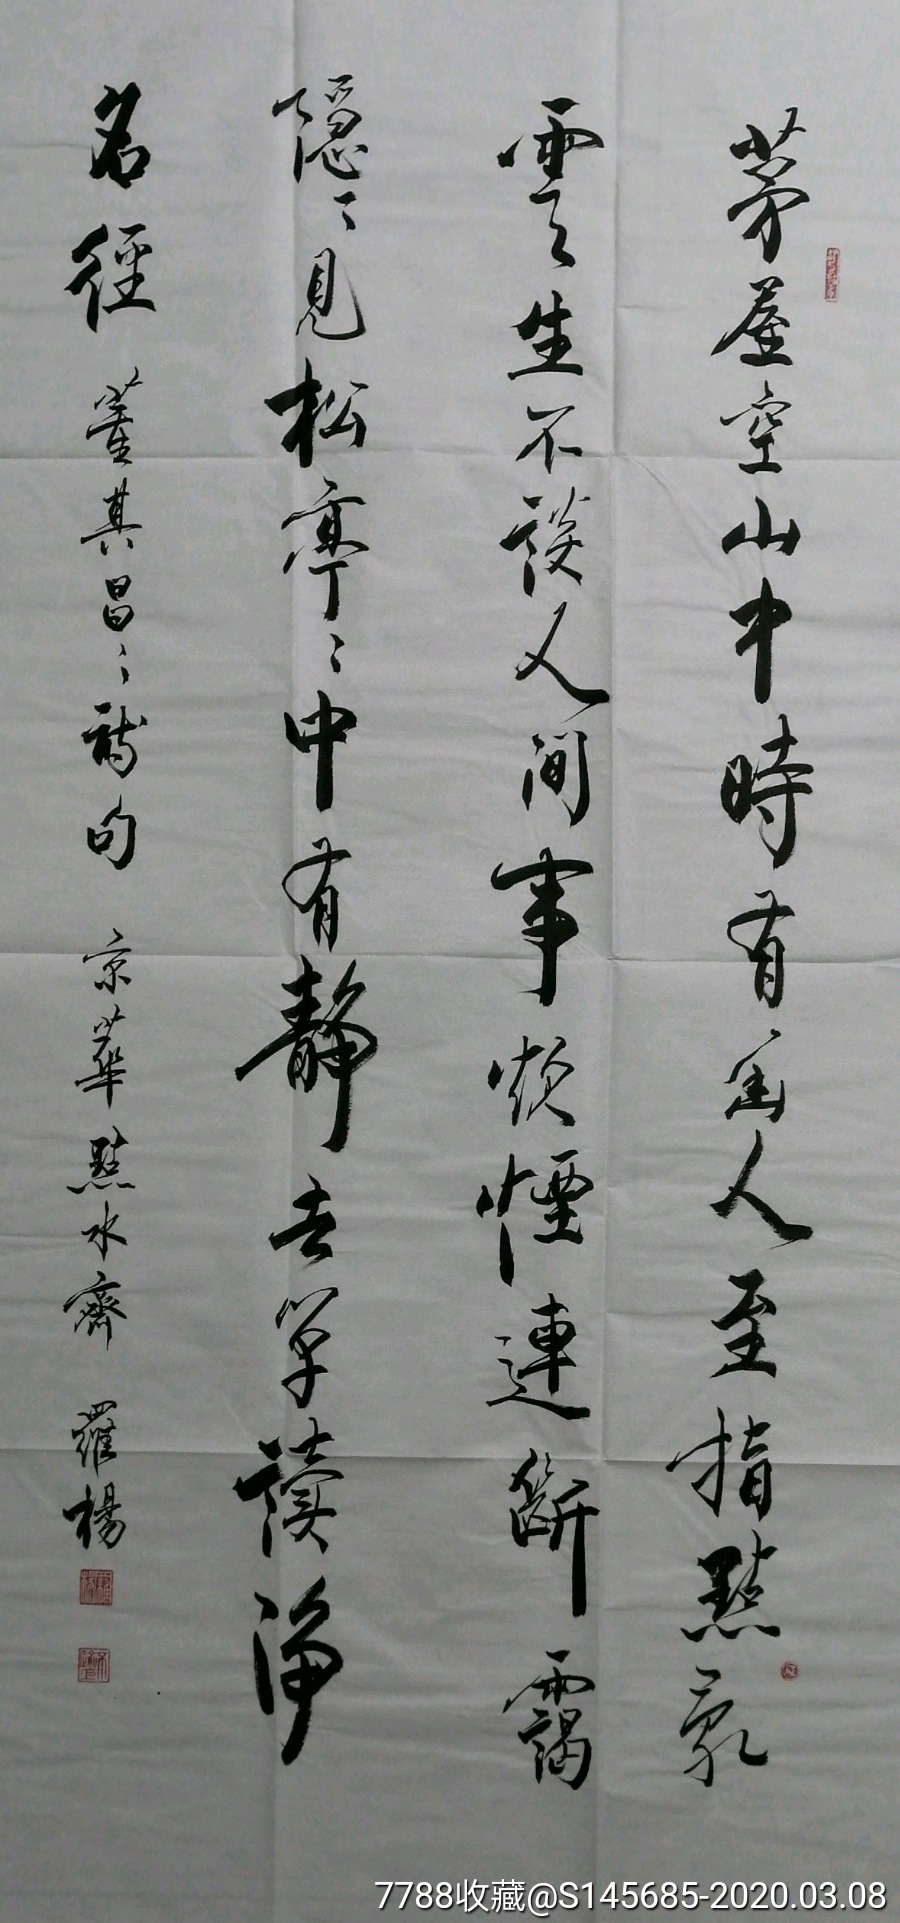 茅屋空山中時有幽人至指點亂
雲生不談人間事煩煙連斷靄
隱〻見松亭〻中有靜者單讀淨
名徑 董其昌〻詩句 京華點水齋 羅楊
7788收藏@S145685-2020.03.08